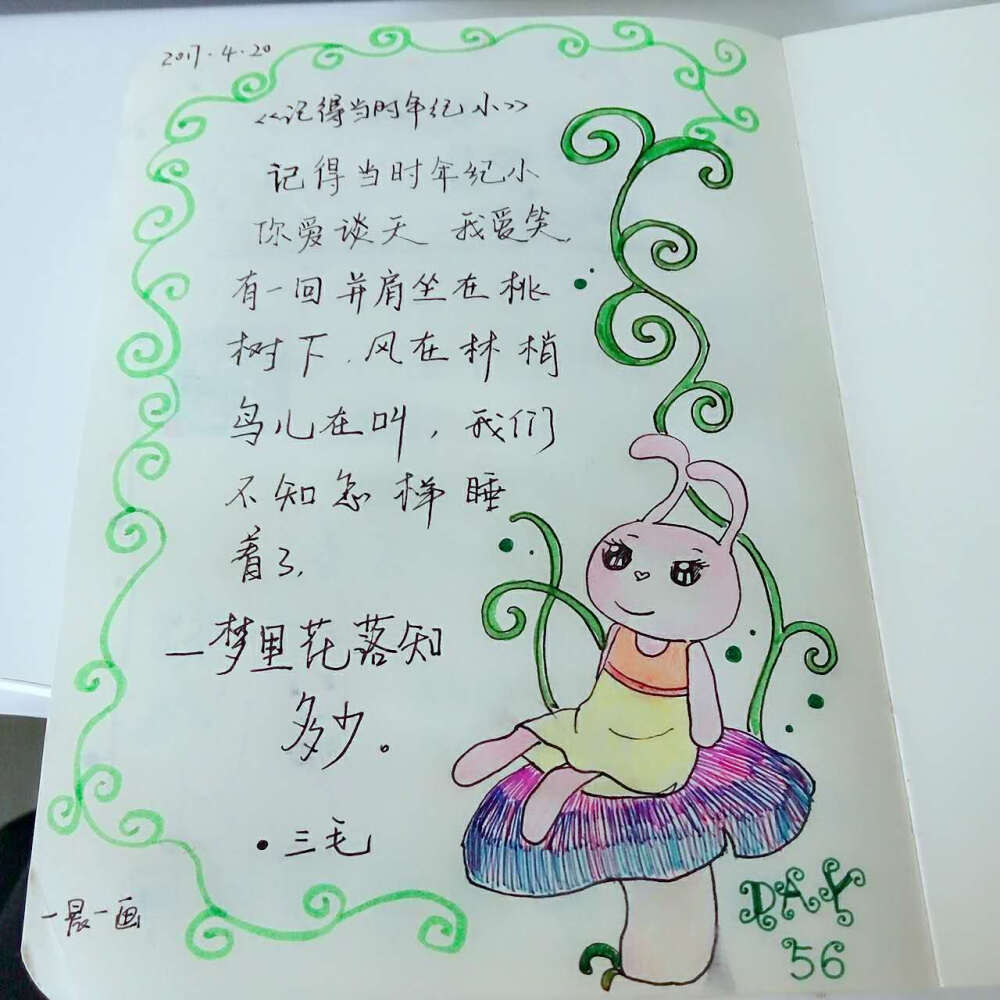 2017.4.20
《记得当时年纪小》
记得当时年纪小
你爱谈天 我爱笑,
有一回并肩坐在桃
树下,风在林梢
鸟儿在叫,我们
不知怎样睡
着了,
—梦里花落知
多少。
·三毛
一晨一画
DAY
56